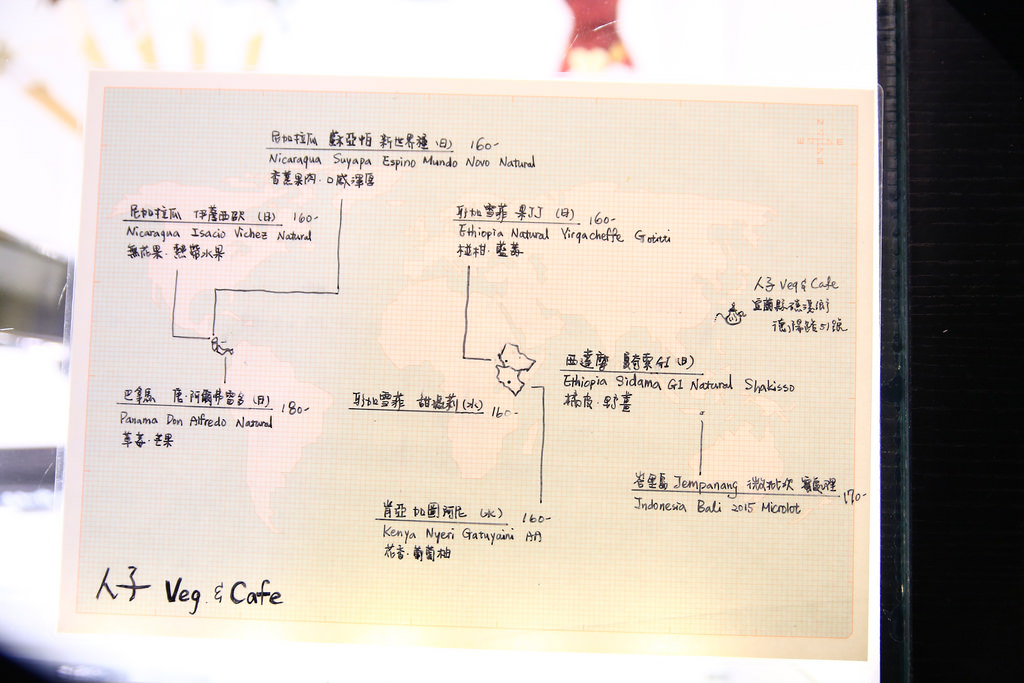 尼加拉瓜 蘇亞帕 新世界種(日) 160-
Nicaragua Suyapa Espino Mundo Novo Natural
香蕉果肉·口感深厚
尼加拉瓜 伊薩西歐 (日) 160-
Nicaragua Isacio Vichez Natural
無花果·熱帶水果
耶加雪菲 果JJ (日) 160-
Ethiopia Natural Yirgacheffe Gotiti
椪柑·藍莓
人子 Veg & Cafe
宜蘭縣礁溪鄉
德陽路51號
西達摩 夏奇索G1(日)
Ethiopia Sidama G1 Natural Shakisso
橘皮·野薑
巴拿馬 唐·阿爾弗雷多(日) 180-
Panama Don Alfredo Natural
草莓·芒果
耶加雪菲 甜蜜莉(水) 160-
峇里島 Jempanang 微批次 蜜處理 170-
Indonesia Bali 2015 Microlot
肯亞 加圖阿尼 (水) 160-
Kenya Nyeri Gatuyaini AA
花香·葡萄柚
人子 Veg. & Cafe